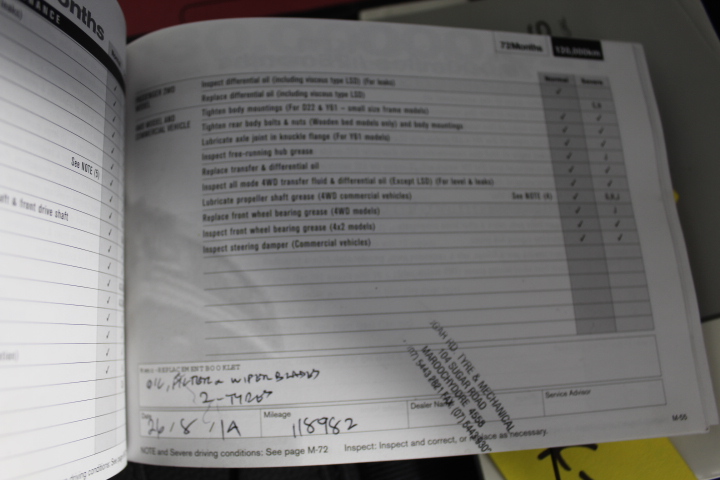 onths
NANCE
See NOTE (5)
aft & front drive shaft
72Months
120,000km
Normal
Severe
Inspect differential oil (including viscous type LSD) (For leaks)
Replace differential oil (including viscous type LSD)
Tighten body mountings (For D22 & Y61 – small size frame models)
4WD MODEL AND
COMMERCIAL VEHICLE
Tighten rear body bolts & nuts (Wooden bed models only) and body mountings
Lubricate axle joint in knuckle flange (For Y61 models)
Inspect free-running hub grease
Replace transfer & differential oil
Inspect all mode 4WD transfer fluid & differential oil (Except LSD) (For level & leaks)
Lubricate propeller shaft grease (4WD commercial vehicles) See NOTE (4)
Replace front wheel bearing grease (4WD models)
Inspect front wheel bearing grease (4x2 models)
Inspect steering damper (Commercial vehicles)
REPLACEMENT BOOKLET
OIL, FILTER & WIPER BLADES
2 - TYRES
Date
26/8/1A
Mileage
118982
Dealer Name
Service Advisor
TYRE & MECHANICAL
104 SUGAR ROAD
MAROOCHYDORE 4558
NOTE and Severe driving conditions: See page M-72 Inspect: Inspect and correct, or replace as necessary.
M-55